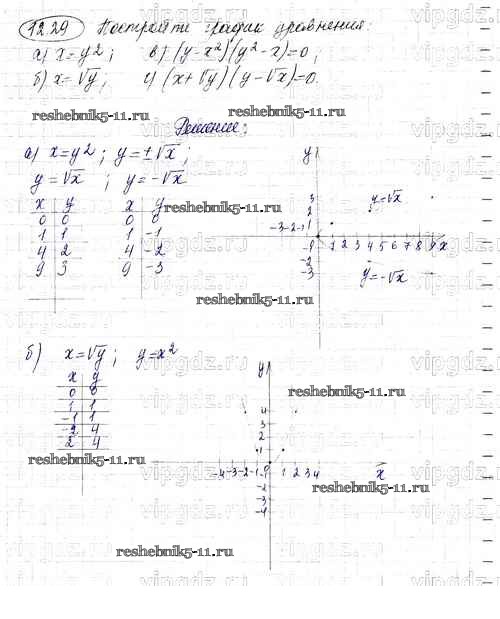 12.29 Построить график уравнения:
а) x = y²; в) (y - x²)(y² - x) = 0;
б) x = √y; г) (x + √y)(y - √x) = 0.
reshebnik5-11.ru reshebnik5-11.ru
Решение:
а) x = y²; y = ±√x;
y = √x; y = -√x
x y x y
0 0 0 0
1 1 1 -1
4 2 4 -2
9 3 9 -3
reshebnik5-11.ru
y
3
2
-3-2-1 1
0 1 2 3 4 5 6 7 8 9 x
-2
-3
y = √x
y = -√x
reshebnik5-11.ru
б) x = √y; y = x²
x y
0 0
1 1
-1 1
-2 4
2 4
reshebnik5-11.ru
y
4
3
2
1
-4-3-2-1 0 1 2 3 4 x
-2
-3
-4
reshebnik5-11.ru
reshebnik5-11.ru
reshebnik5-11.ru
vipgdz.ru